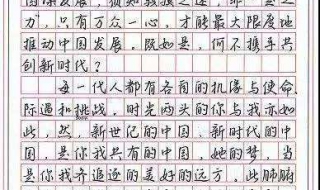 国深发展，须知筑旗之迹，非一登之
力，只有万众一心，才能最大限度地
推动中国发展。既如是，何不携手共
创新时代？
每一代人都有各自的机缘与使命
际遇和挑战，时光两头的你与我亦如
此，然，新世纪的中国，新时代的中
国，是你我共有的中国，她的梦，当
是你我齐追逐的美好的远方，此肺腑